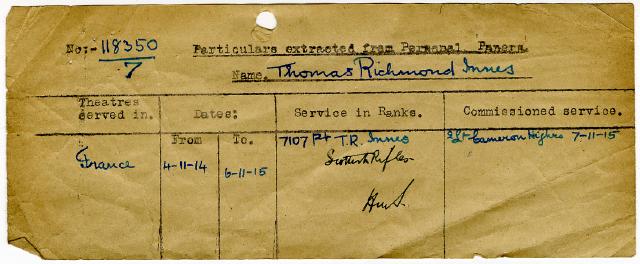 No:- 118350
7
Particulars extracted from Personal Papers.
Name. Thomas Richmond Innes
Theatres served in. Dates: Service in Ranks. Commissioned service.
From To.
France 4-11-14 6-11-15 7107 Pt T.R. Innes 2/Lt Cameron Highrs 7-11-15
Scottish Rifles